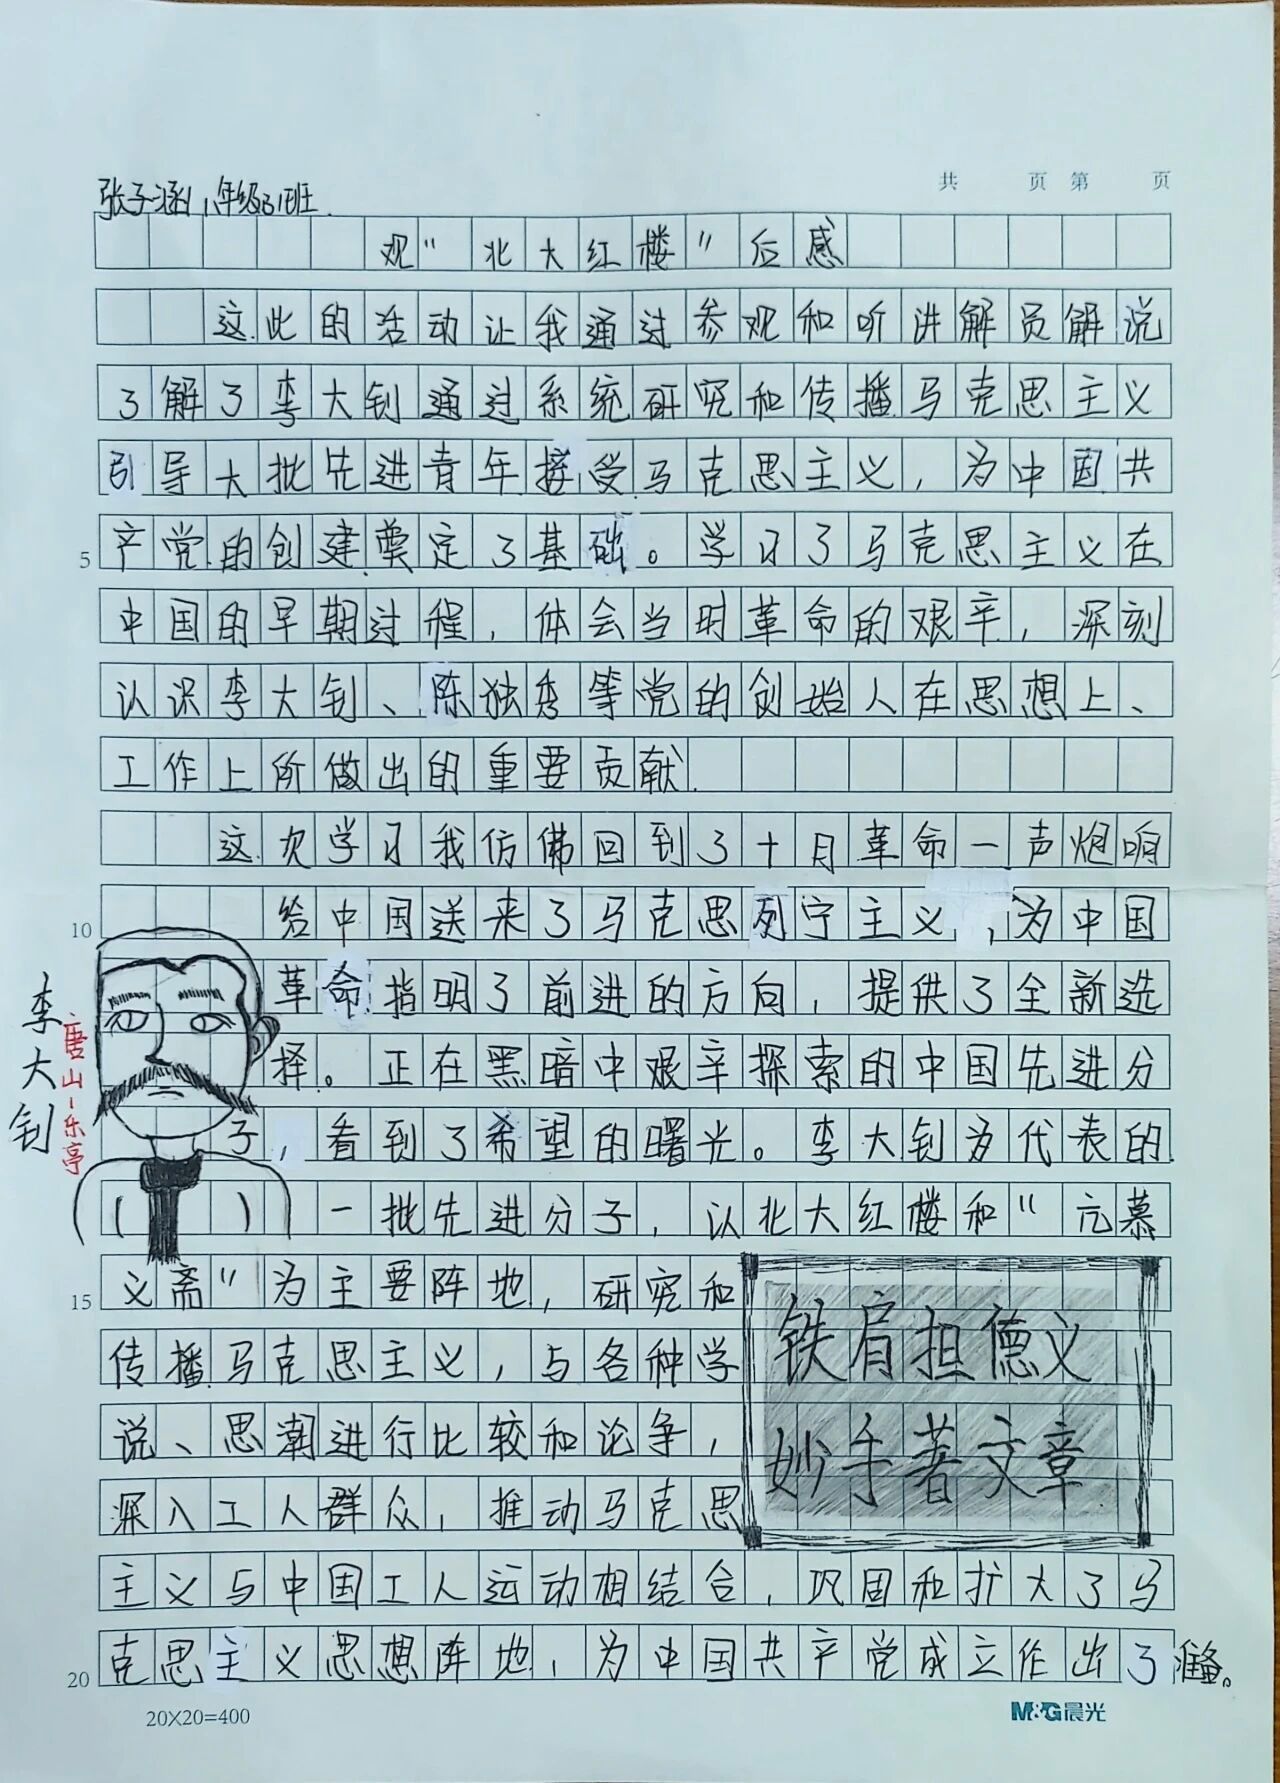 共 页 第 页
张子涵 八年级31班
观“北大红楼”后感
这此的活动让我通过参观和听讲解员解说
了解了李大钊通过系统研究和传播马克思主义
引导大批先进青年接受马克思主义，为中国共
产党的创建奠定了基础。学习了马克思主义在
5
中国的早期过程，体会当时革命的艰辛，深刻
认识李大钊、陈独秀等党的创始人在思想上、
工作上所做出的重要贡献
这次学习我仿佛回到了十月革命一声炮响
给中国送来了马克思列宁主义，为中国
10
革命指明了前进的方向，提供了全新选
择。正在黑暗中艰辛探索的中国先进分
子，看到了希望的曙光。李大钊为代表的
一批先进分子，以北大红楼和“亢慕
义斋”为主要阵地，研究和
15
传播马克思主义，与各种学
说、思潮进行比较和论争，
深入工人群众，推动马克思
主义与中国工人运动相结合，巩固和扩大了马
克思主义思想阵地，为中国共产党成立作出了准备。
20
李大钊
唐山-乐亭
铁肩担德义
妙手著文章
20×20=400
M&G晨光